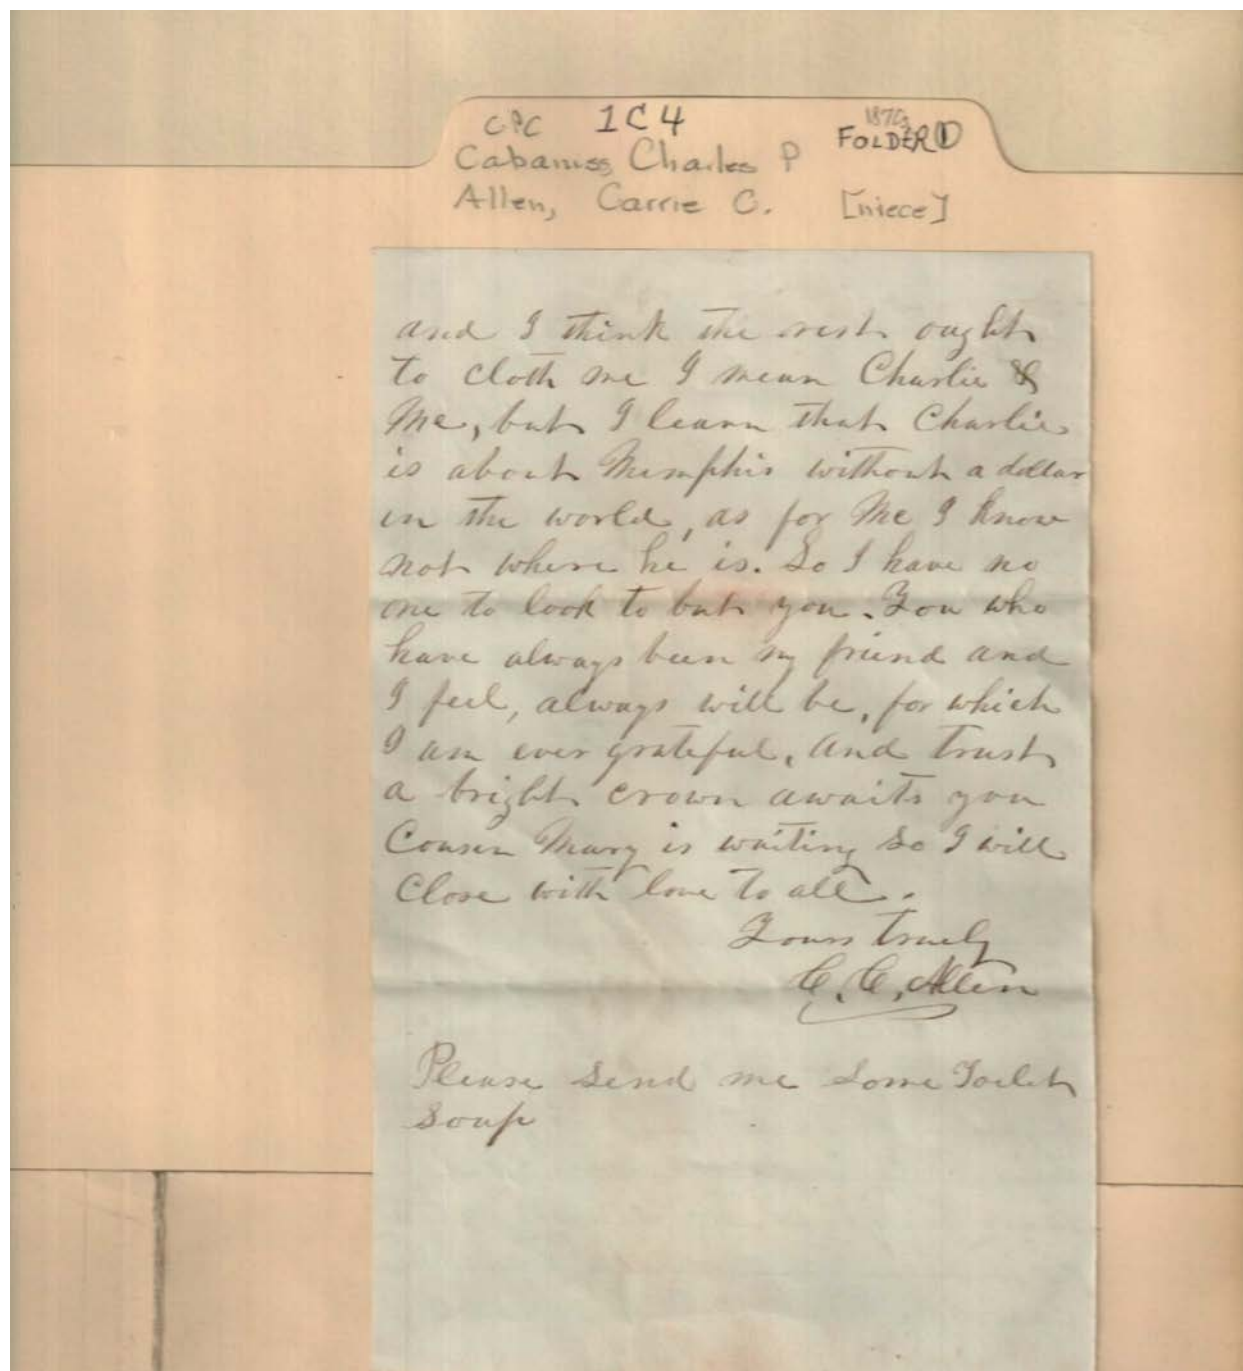 CPC 1C4 1870s
FOLDER ①
Cabaniss, Charles P
Allen, Carrie C. [niece]
and I think the rest ought
to cloth me I mean Charlie &
Mc, but I learn that Charlie
is about Memphis without a dollar
in the world, as for Mc I know
not where he is. So I have no
one to look to but you. You who
have always been my friend and
I feel, always will be, for which
I am ever grateful, and trust
a bright crown awaits you
Cousin Mary is waiting so I will
close with love to all.
Yours truely
C. C. Allen
Please send me some Toilet
Soap